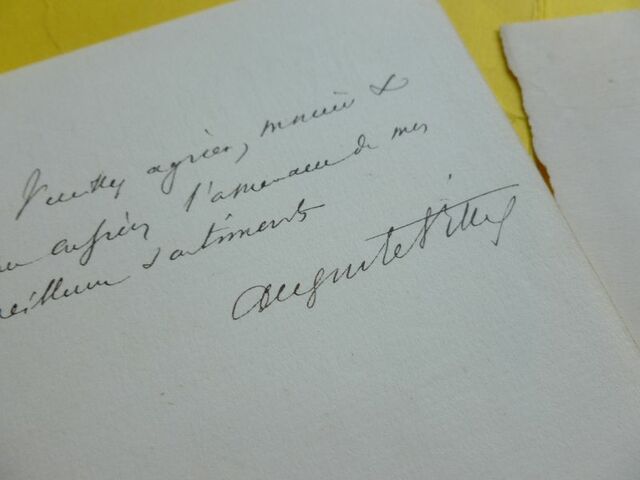 Veuillez agréer, monsieur &
confrère l'assurance de mes
meilleurs sentiments
Auguste Vitu